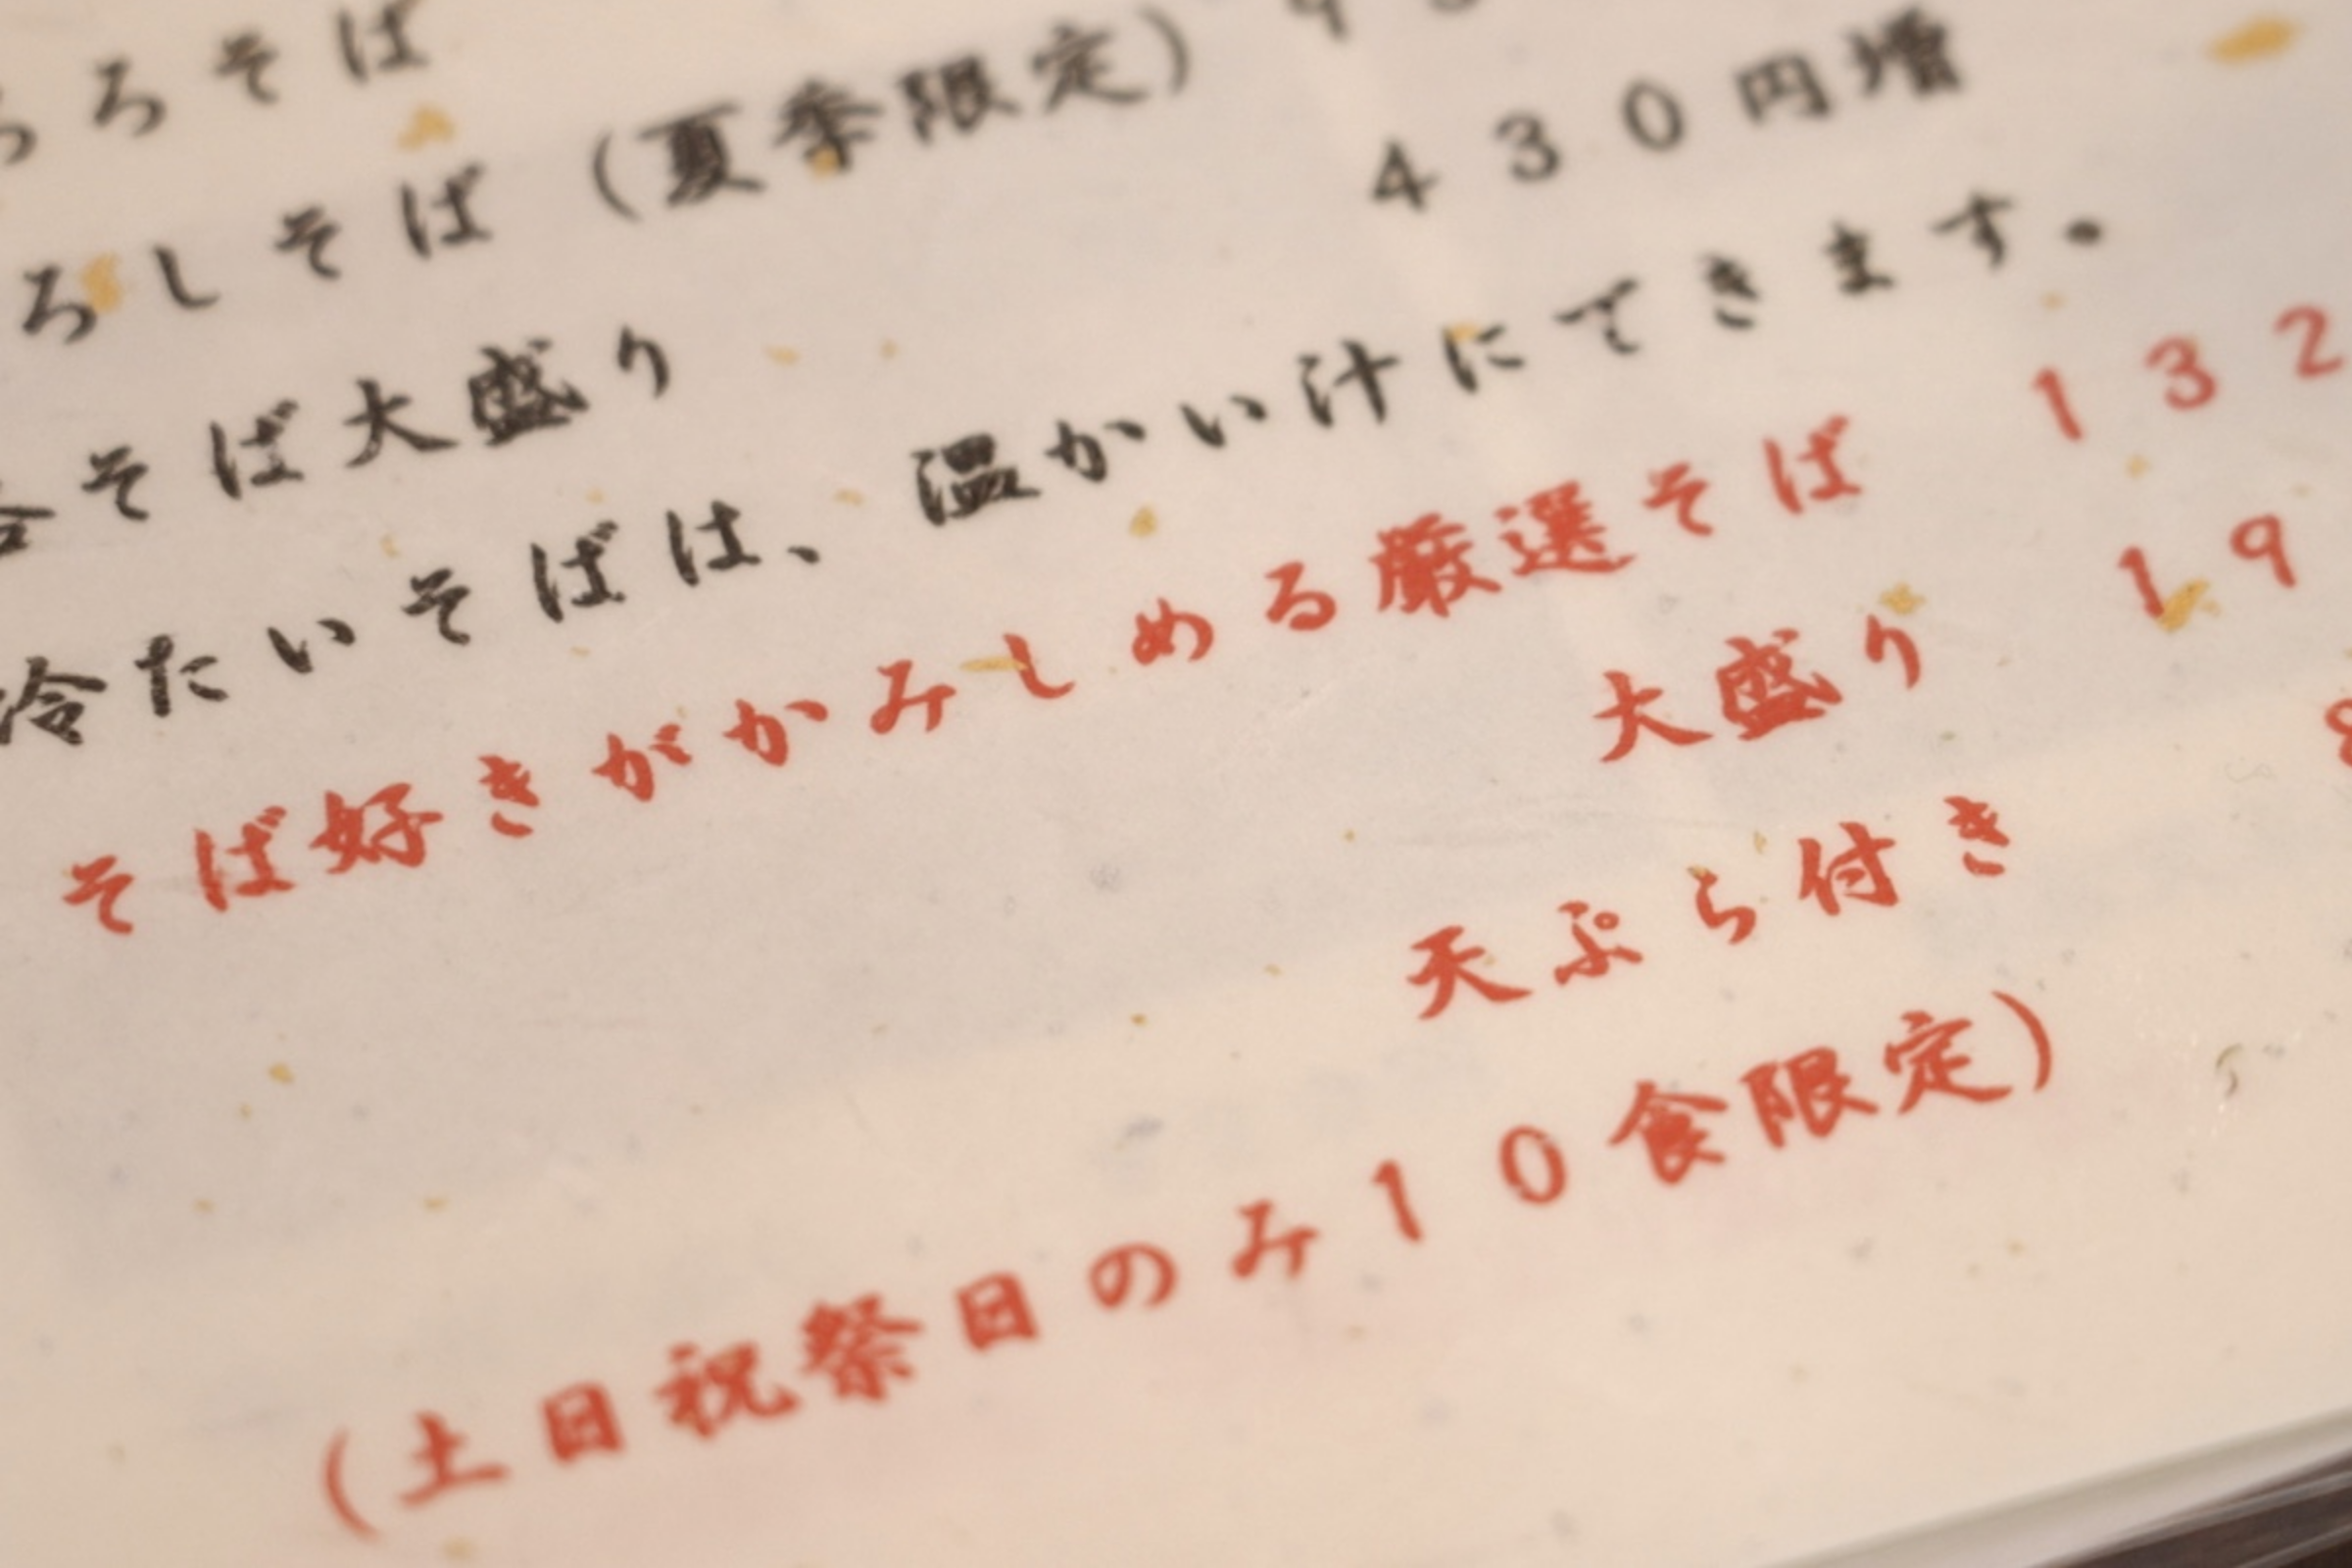 ろそば
ろしそば（夏季限定）
そば大盛り　４３０円増
冷たいそばは、温かい汁にてきます。
そば好きがかみしめる厳選そば　１３２
大盛り　１９
天ぷら付き　８
（土日祝祭日のみ１０食限定）